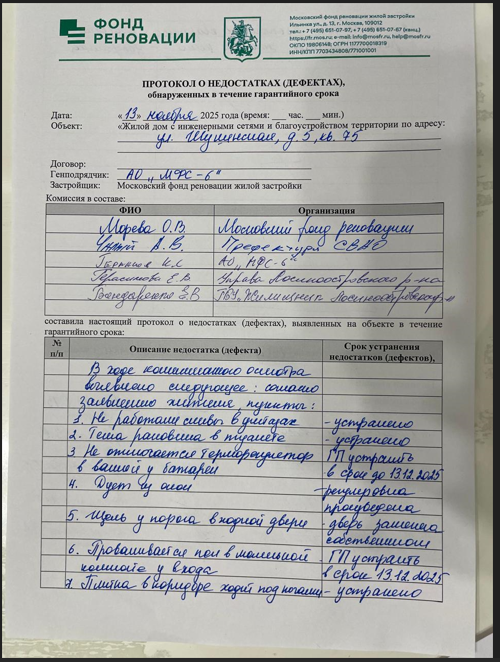 ФОНД
РЕНОВАЦИИ
Московский фонд реновации жилой застройки
Ильинка ул., д. 13, г. Москва, 109012
тел.: + 7 (495) 651-07-97, + 7 (495) 651-07-67 (канц.)
https://fr.mos.ru; e-mail: info@mosfr.ru, help@mosfr.ru
ОКПО 19806148; ОГРН 1177700019319
ИНН/КПП 7703434809/771001001
ПРОТОКОЛ О НЕДОСТАТКАХ (ДЕФЕКТАХ),
обнаруженных в течение гарантийного срока
Дата: «13» ноября 2025 года (время: ___ час. ___ мин.)
Объект: «Жилой дом с инженерными сетями и благоустройством территории по адресу:
ул. Шушенская, д. 5, кв. 75
Договор:
Генподрядчик: АО „МФС-6"
Застройщик: Московский фонд реновации жилой застройки
Комиссия в составе:
ФИО Организация
Морева О.В. Московский фонд реновации
А.В. Префектура СВАО
АО „МФС-6"
Герасимова Е.В. Управа Лосиноостровского р-на
Бондаренко З.В ГБУ „Жилищник Лосиноостровского р-на
составила настоящий протокол о недостатках (дефектах), выявленных на объекте в течение
гарантийного срока:
№ п/п Описание недостатка (дефекта) Срок устранения недостатков (дефектов),
В ходе комиссионного осмотра
выявлено следующее: согласно
заявлению жителя пункты:
1. Не работали сливы в унитазах - устранено
2. Течь раковина в туалете - устранено
3 Не отключается терморегулятор ГП устранить
в ванной у батареи в срок до 13.12.2025
4. Дует из окон - регулировка
произведена
5. Щель у порога входной двери - дверь заменена
собственником
6. Проваливается пол в маленькой - ГП устранить
комнате у входа в срок 13.12.2025
7. Плитка в коридоре ходит под ногами - устранено